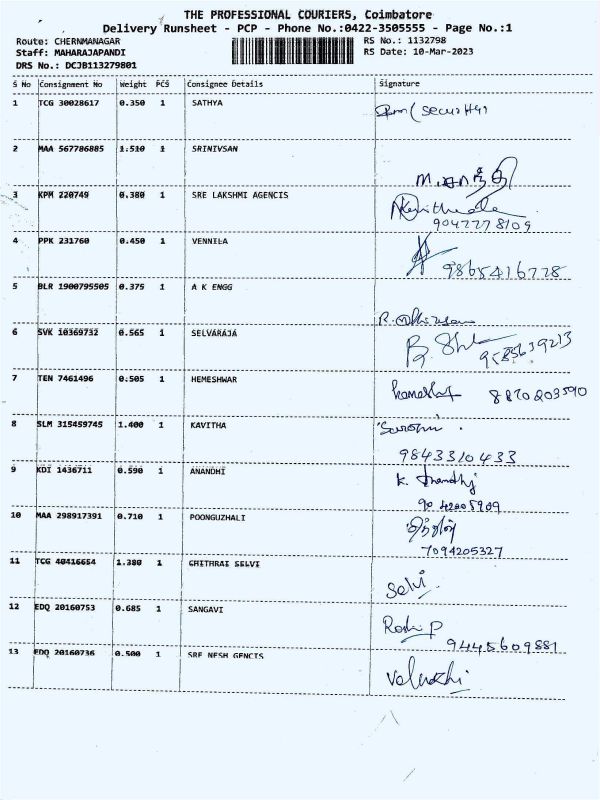 THE PROFESSIONAL COURIERS, Coimbatore
Delivery Runsheet - PCP - Phone No.:0422-3505555 - Page No.:1
Route: CHERNMANAGAR RS No.: 1132798
Staff: MAHARAJAPANDI RS Date: 10-Mar-2023
DRS No.: DCJB113279801
S No Consignment No Weight PCS Consignee Details Signature
1 TCG 30028617 0.350 1 SATHYA
2 MAA 567786885 1.510 1 SRINIVSAN
3 KPM 220749 0.380 1 SRE LAKSHMI AGENCIS
9042278109
4 PPK 231760 0.450 1 VENNILA
9865416778
5 BLR 1900795505 0.375 1 A K ENGG
6 SVK 10369732 0.565 1 SELVARAJA
9585639213
7 TEN 7461496 0.505 1 HEMESHWAR
8870203590
8 SLM 315459745 1.400 1 KAVITHA
9843310433
9 KDI 1436711 0.590 1 ANANDHI K. Anandhi
9042005909
10 MAA 298917391 0.710 1 POONGUZHALI
7094205327
11 TCG 40416654 1.380 1 CHITHRAI SELVI Selvi
12 EDQ 20160753 0.685 1 SANGAVI
9445609881
13 EDQ 20160736 0.500 1 SRE NESH GENCIS